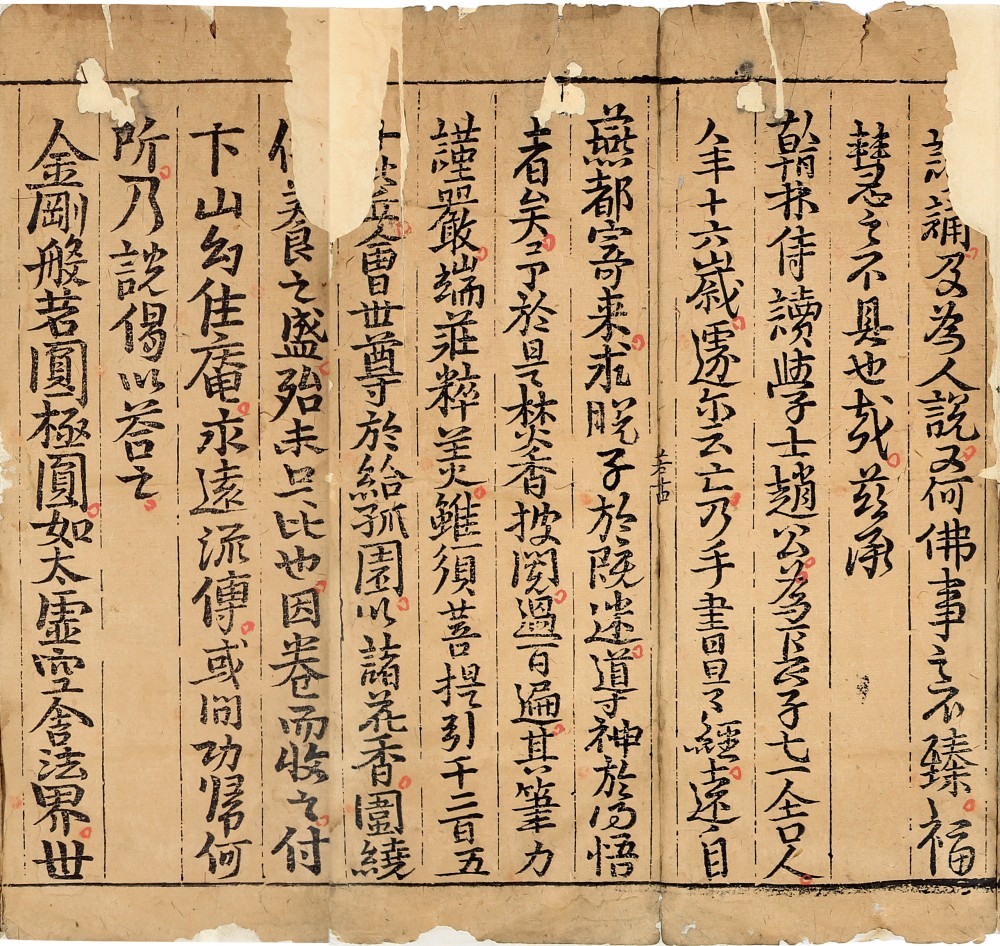 誦及為人說又何佛事之不臻福
慧忍之不具也哉茲承
翰林侍讀學士趙公為長子七一舍人
年十六歲遽尔云亡乃手書是之經遠自
燕都寄来求脫子於既迷導神於乃悟
者矣予於是焚香披閱過百遍其筆力
謹嚴端莊粹美雖須菩提引千二百五
會世尊於給孤園以諸花香圍繞
養之盛殆未足比也因卷而收之付
卞山幻住庵永遠流傳或問功歸何
所乃說偈以荅之
金剛般若圓極圓如太虛空含法界世